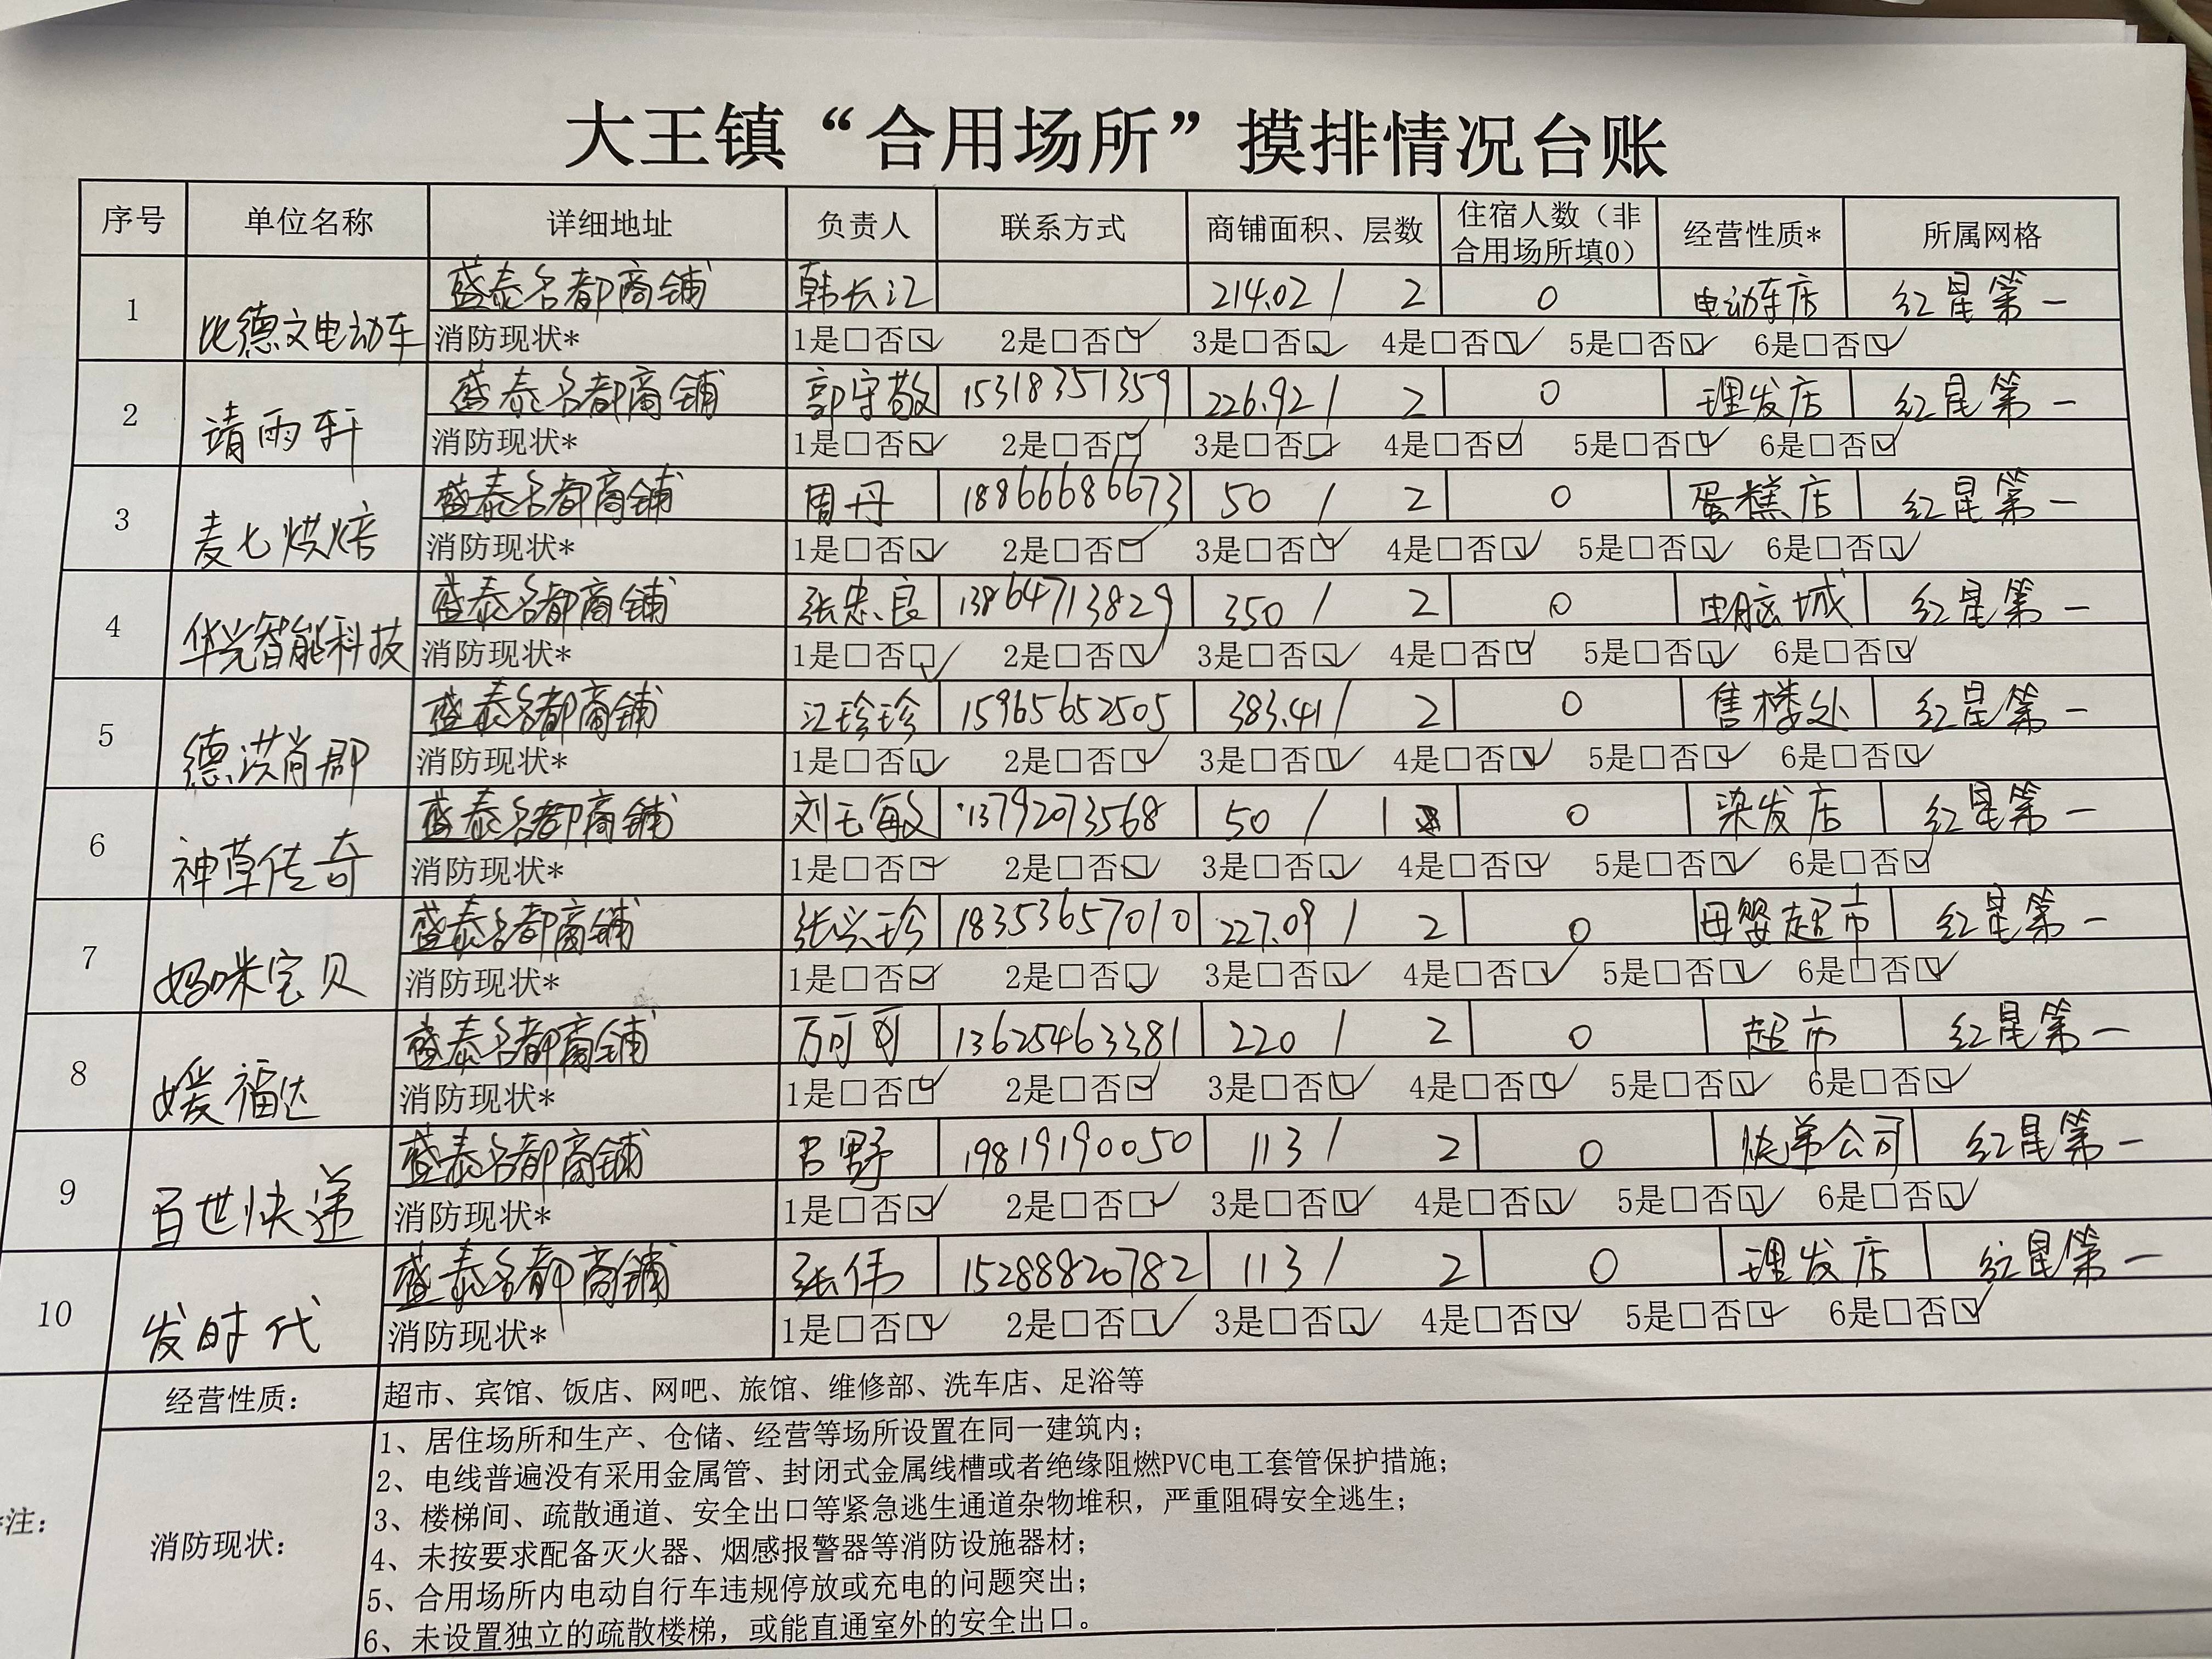 大王镇“合用场所”摸排情况台账
序号 单位名称 详细地址 负责人 联系方式 商铺面积、层数 住宿人数（非合用场所填0） 经营性质* 所属网格
1 比德文电动车 盛泰名都商铺 韩长江 214.02 / 2 0 电动车店 红星第一
消防现状* 1是□否☑ 2是□否☑ 3是□否☑ 4是□否☑ 5是□否☑ 6是□否☑
2 靖雨轩 盛泰名都商铺 郭守敬 15318351359 226.92 / 2 0 理发店 红星第一
消防现状* 1是□否☑ 2是□否☑ 3是□否☑ 4是□否☑ 5是□否☑ 6是□否☑
3 麦七烘焙 盛泰名都商铺 周丹 18866686673 50 / 2 0 蛋糕店 红星第一
消防现状* 1是□否☑ 2是□否☑ 3是□否☑ 4是□否☑ 5是□否☑ 6是□否☑
4 华光智能科技 盛泰名都商铺 张忠良 13864713829 350 / 2 0 电脑城 红星第一
消防现状* 1是□否☑ 2是□否☑ 3是□否☑ 4是□否☑ 5是□否☑ 6是□否☑
5 德洪肖郡 盛泰名都商铺 江珍珍 15965652505 383.41 / 2 0 售楼处 红星第一
消防现状* 1是□否☑ 2是□否☑ 3是□否☑ 4是□否☑ 5是□否☑ 6是□否☑
6 神草传奇 盛泰名都商铺 刘玉敏 13792073568 50 / 1 0 染发店 红星第一
消防现状* 1是□否☑ 2是□否☑ 3是□否☑ 4是□否☑ 5是□否☑ 6是□否☑
7 妈咪宝贝 盛泰名都商铺 张兴珍 18353657010 227.09 / 2 0 母婴超市 红星第一
消防现状* 1是□否☑ 2是□否☑ 3是□否☑ 4是□否☑ 5是□否☑ 6是□否☑
8 媛福达 盛泰名都商铺 万可可 13625463381 220 / 2 0 超市 红星第一
消防现状* 1是□否☑ 2是□否☑ 3是□否☑ 4是□否☑ 5是□否☑ 6是□否☑
9 百世快递 盛泰名都商铺 吕野 19819190050 113 / 2 0 快递公司 红星第一
消防现状* 1是□否☑ 2是□否☑ 3是□否☑ 4是□否☑ 5是□否☑ 6是□否☑
10 发时代 盛泰名都商铺 张伟 15288820782 113 / 2 0 理发店 红星第一
消防现状* 1是□否☑ 2是□否☑ 3是□否☑ 4是□否☑ 5是□否☑ 6是□否☑
*注：
经营性质： 超市、宾馆、饭店、网吧、旅馆、维修部、洗车店、足浴等
消防现状：
1、居住场所和生产、仓储、经营等场所设置在同一建筑内；
2、电线普遍没有采用金属管、封闭式金属线槽或者绝缘阻燃PVC电工套管保护措施；
3、楼梯间、疏散通道、安全出口等紧急逃生通道杂物堆积，严重阻碍安全逃生；
4、未按要求配备灭火器、烟感报警器等消防设施器材；
5、合用场所内电动自行车违规停放或充电的问题突出；
6、未设置独立的疏散楼梯，或能直通室外的安全出口。